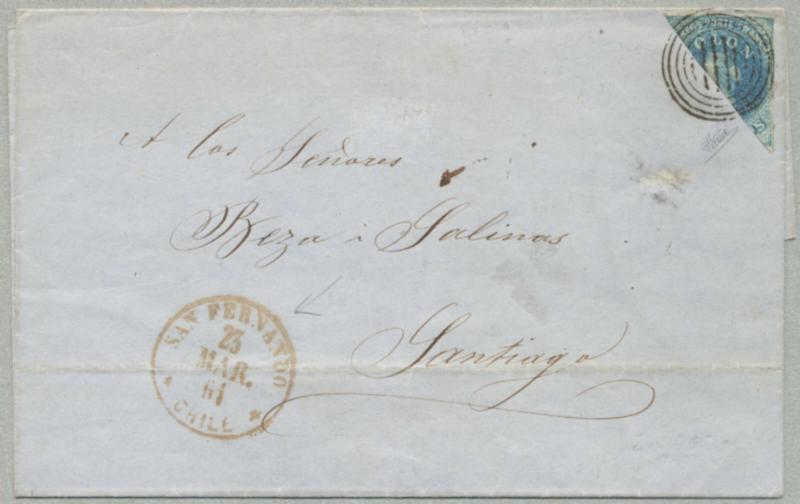 COLON
A los Señores
Beza i Salinas
Santiago
SAN FERNANDO
23
MAR.
61
CHILE